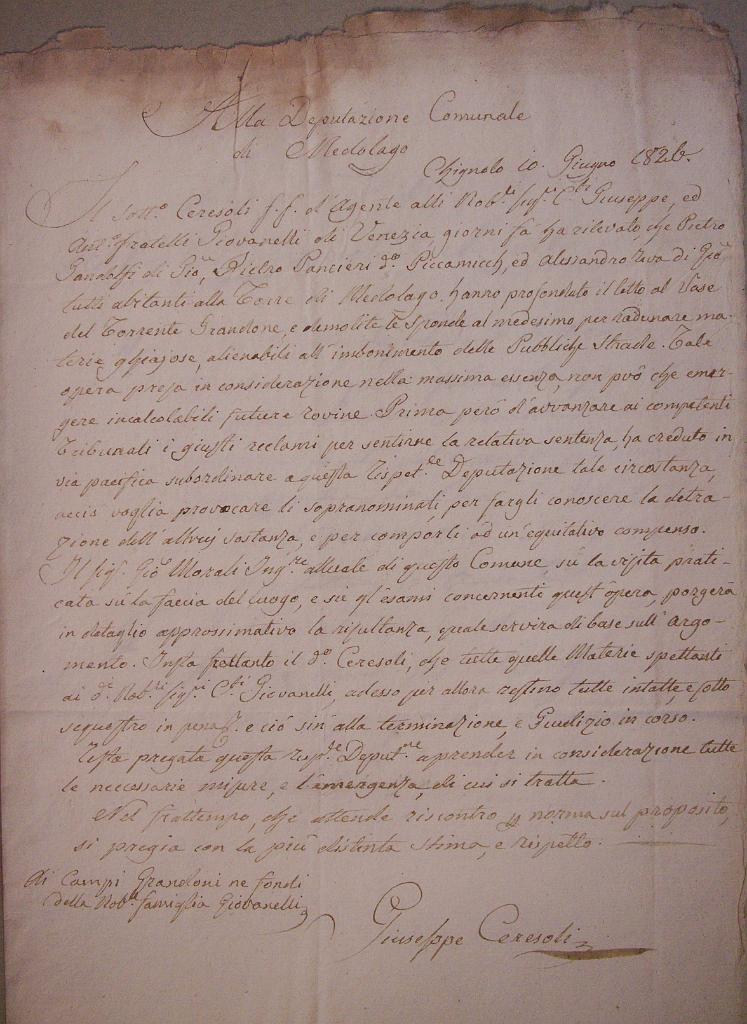 Alla Deputazione Comunale
di Medolago
Chignolo 10. Giugno 1826.
Il sott.o Ceresoli f.f. d'Agente alli Nob.li Sig.ri C.ti Giuseppe, ed
Ant.o fratelli Giovanelli di Venezia, giorni fà ha rilevato, che Pietro
Gandolfi di Gio., Pietro Pancieri d.o Piccamicch, ed Alessandro Rava di Gio.
tutti abitanti alla Torre di Medolago, hanno profondato il letto al Vase
del Torrente Grandone, e demolite le sponde al medesimo per radunare ma-
terie ghiajose, alienabili all'imbonimento delle Pubbliche Strade. Tale
opera presa in considerazione nella massima essenza, non può che emer-
gere incalcolabili future rovine. Prima però d'avvanzare ai competenti
Tribunali i giusti reclami per sentirne la relativa sentenza, ha creduto in
via pacifica subordinare a questa Rispet.le Deputazione tale circostanza,
acciò voglia provocare li sopranominati, per fargli conoscere la detra-
zione dell'altruj sostanza, e per comporli ad un'equitativo compenso.
Il Sig.r Gio. Morali Ing.re attuale di questo Comune, sù la visita prati-
cata sù la faccia del luogo, e sù gl'esami concernenti quest'opera, porgerà
in detaglio approssimativo la risultanza, quale servirà di base sull'Argo-
mento. Insta frattanto il d.o Ceresoli, che tutte quelle Materie spettanti
ai d.i Nob.li Sig.ri C.ti Giovanelli, adesso per allora restino tutte intatte, e sotto
sequestro in pena e ciò sin'alla terminazione, e Giudizio in corso.
Resta pregata questa Risp.le Deput.ne a prender in considerazione tutte
le neccessarie misure, e l'emergenza, di cui si tratta.
Nel frattempo, che attende riscontro norma sul proposito,
si pregia con la più distinta stima, e rispetto.
Ai Campi Grandoni ne fondi
della Nob.e famiglia Giovanelli
Giuseppe Ceresoli